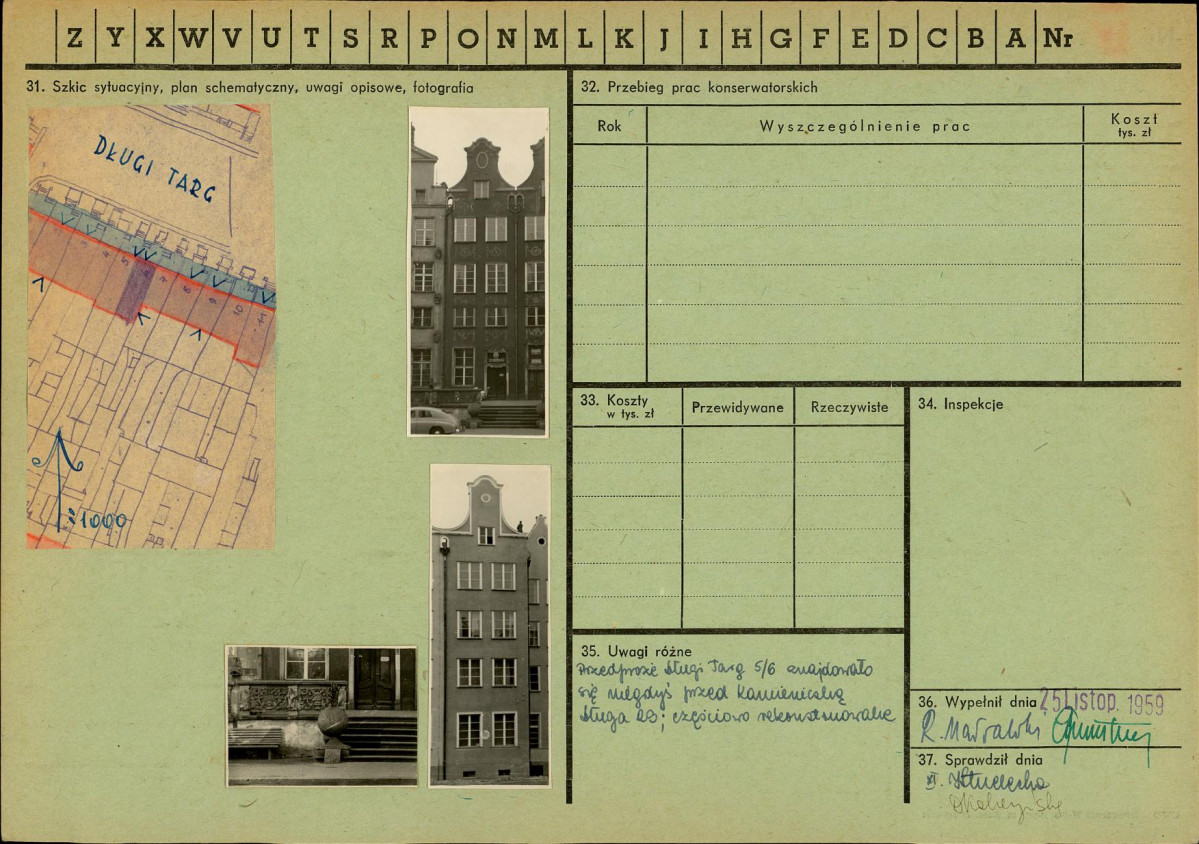 Z Y X W V U T S R P O N M L K J I H G F E D C B A Nr
31. Szkic sytuacyjny, plan schematyczny, uwagi opisowe, fotografia
DŁUGI TARG
4 5 6 7 8 9 10 11
1:1000
32. Przebieg prac konserwatorskich
Rok
Wyszczególnienie prac
Koszt
tys. zł
33. Koszty
w tys. zł
Przewidywane
Rzeczywiste
34. Inspekcje
35. Uwagi różne
Przedproże Długi Targ 5/6 znajdowało
się niegdyś przed kamieniczką
Długa 28; częściowo rekonstruowane
36. Wypełnił dnia 25 Listop. 1959
R. Massalski
37. Sprawdził dnia